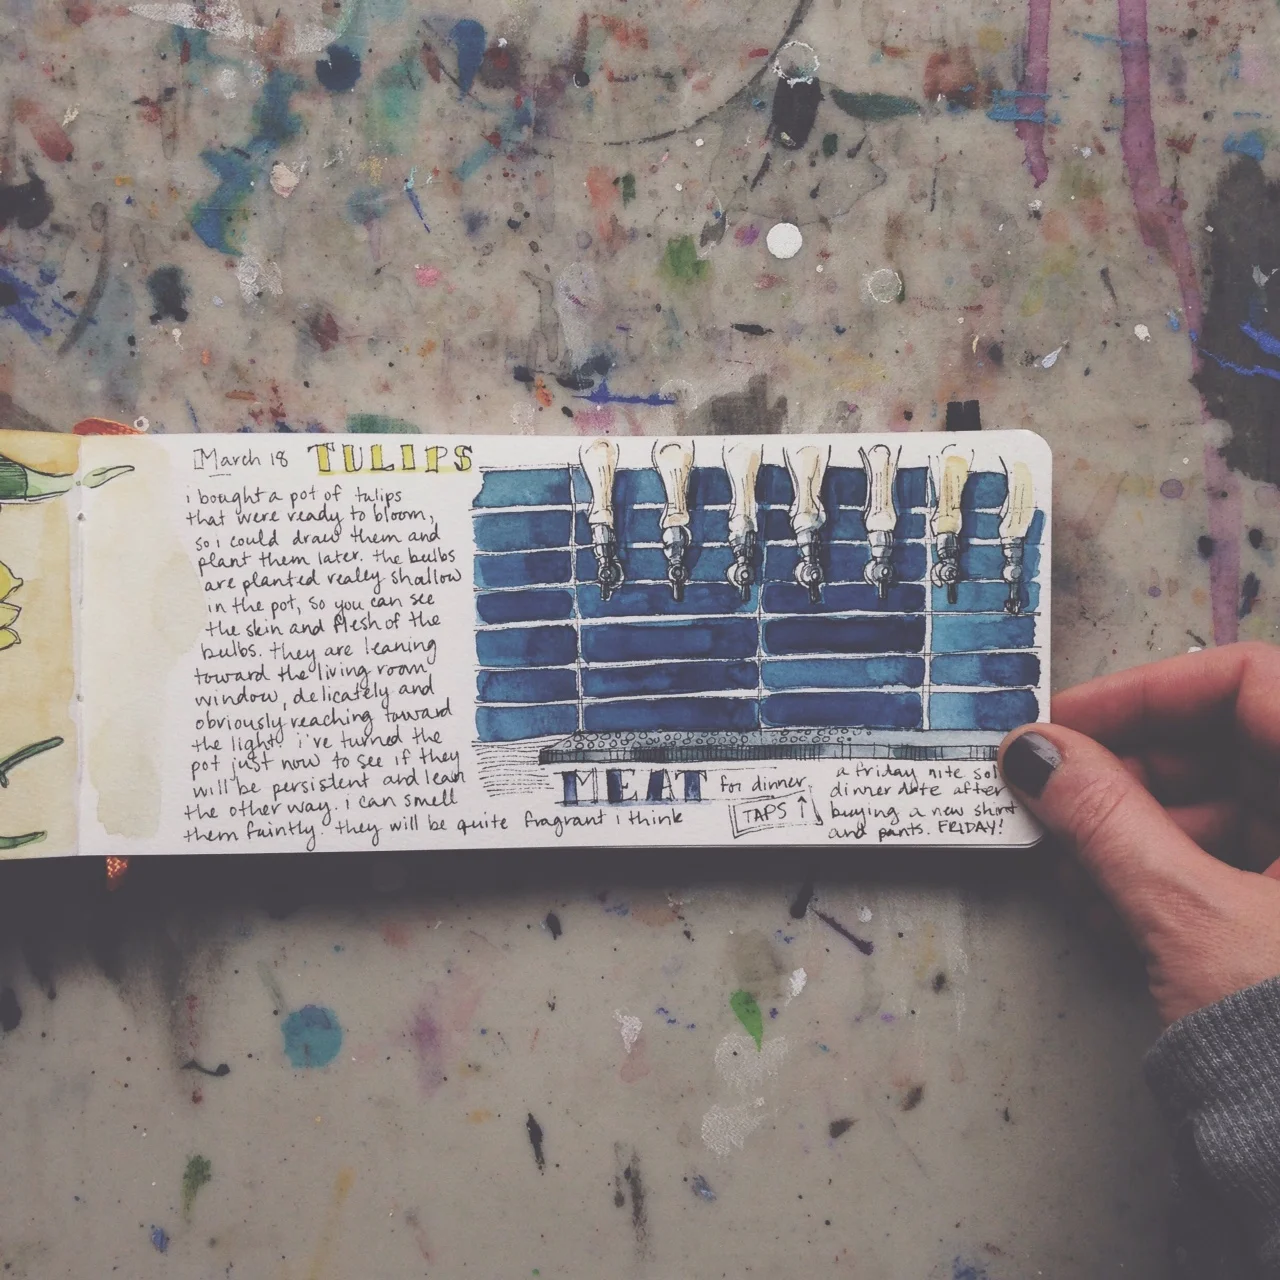 March 18 TULIPS
i bought a pot of tulips
that were ready to bloom,
so i could draw them and
plant them later. the bulbs
are planted realey shallow
in the pot, so you can see
the skin and flesh of the
bulbs. they are leaning
toward the living room
window, delicately and
obviously reaching toward
the light. i've turned the
pot just now to see if they
will be persistent and lean
the other way. i can smell
them faintly. they will be quite fragrant i think
MEAT for dinner
TAPS ↑
a friday nite solo
dinner date after
buying a new shirt
and pants. FRIDAY!